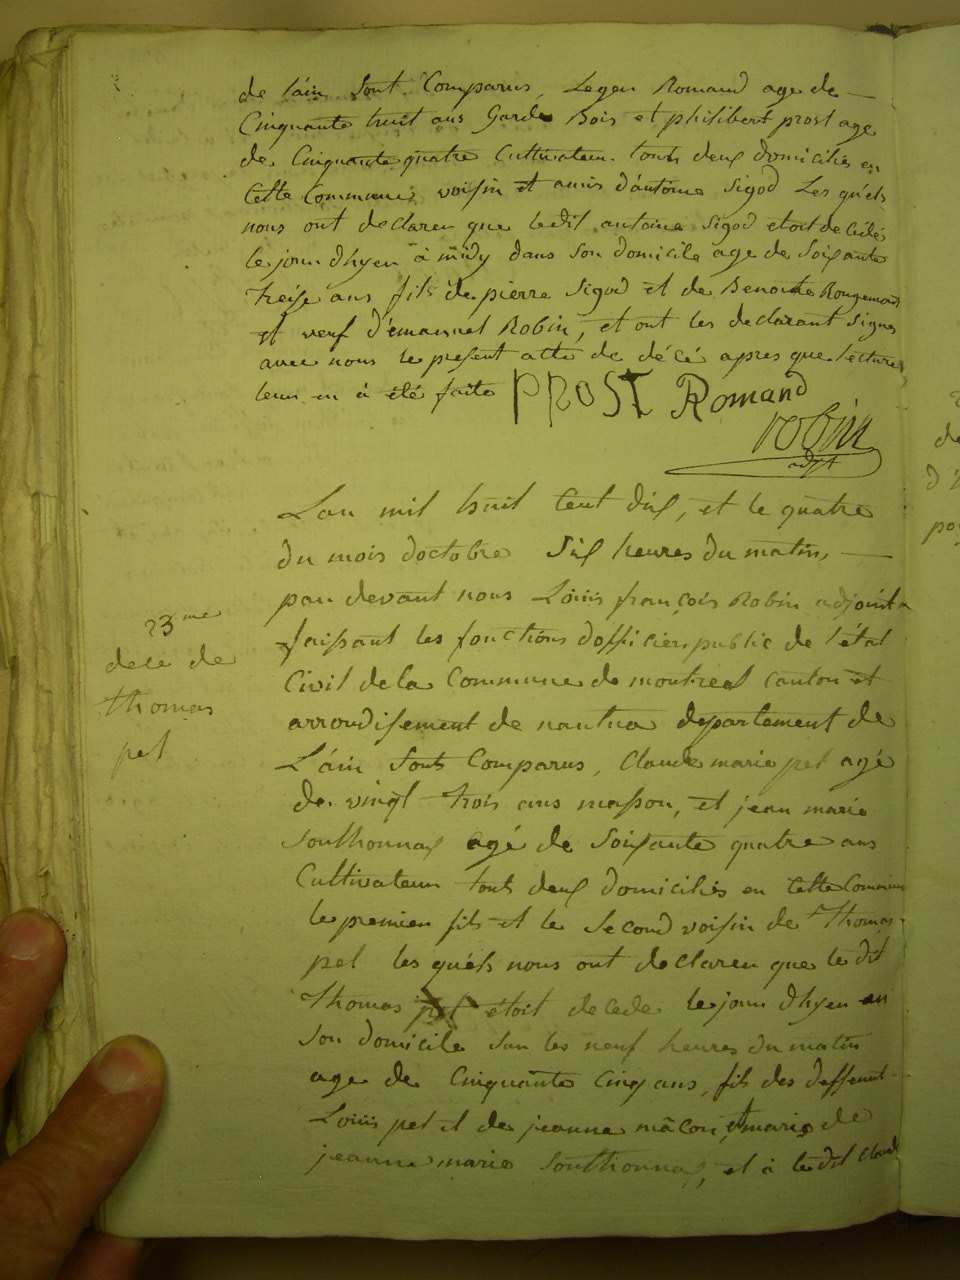 de l'ain sont Comparus, Leger Romand age de
Cinquante huit ans Garde Bois et philibert prost age
de Cinquante quatre Cultivateur touts deux domiciliés en
Cette Commune, voisin et amis d'antoine Sigod Les quéls
nous ont declarer que ledit antoine Sigod etoit decédés
le jour d'hyer a midy dans son domicile age de soixante
treize ans fils de pierre Sigod et de Benoite Rougemond
et veuf d'émanuel Robin, et ont les declarant signes
avec nous le present atte de décé apres que lecture
leurs en à été faite PROST Romand
robin
adjt
23me
dece de
thomas
pet
Lan mil huit cent dix, et le quatre
du mois doctobre six heures du matin,
par devant nous Loüis françois Robin adjoint
faissant les fonctions dofficier public de l'état
Civil de la Commune de montreal canton et
arrondissement de nantua departement de
L'ain sont Comparus, Claude marie pet agé
de vingt trois ans masson, et jean marie
southonnax agé de soixante quatre ans
Cultivateur touts deux domiciliés en Cette Commune
le premier fils et le second voisin de Thomas
pet les quéls nous ont declarer que le dit
Thomas pet étoit decede le jour d'hyer en
son domicile sur les neuf heures du matin
age de Cinquante cinq ans, fils des deffunt
Loüis pet et de jeanne mâcon, et marie de
jeanne marie southonnax, et à le dit Claude